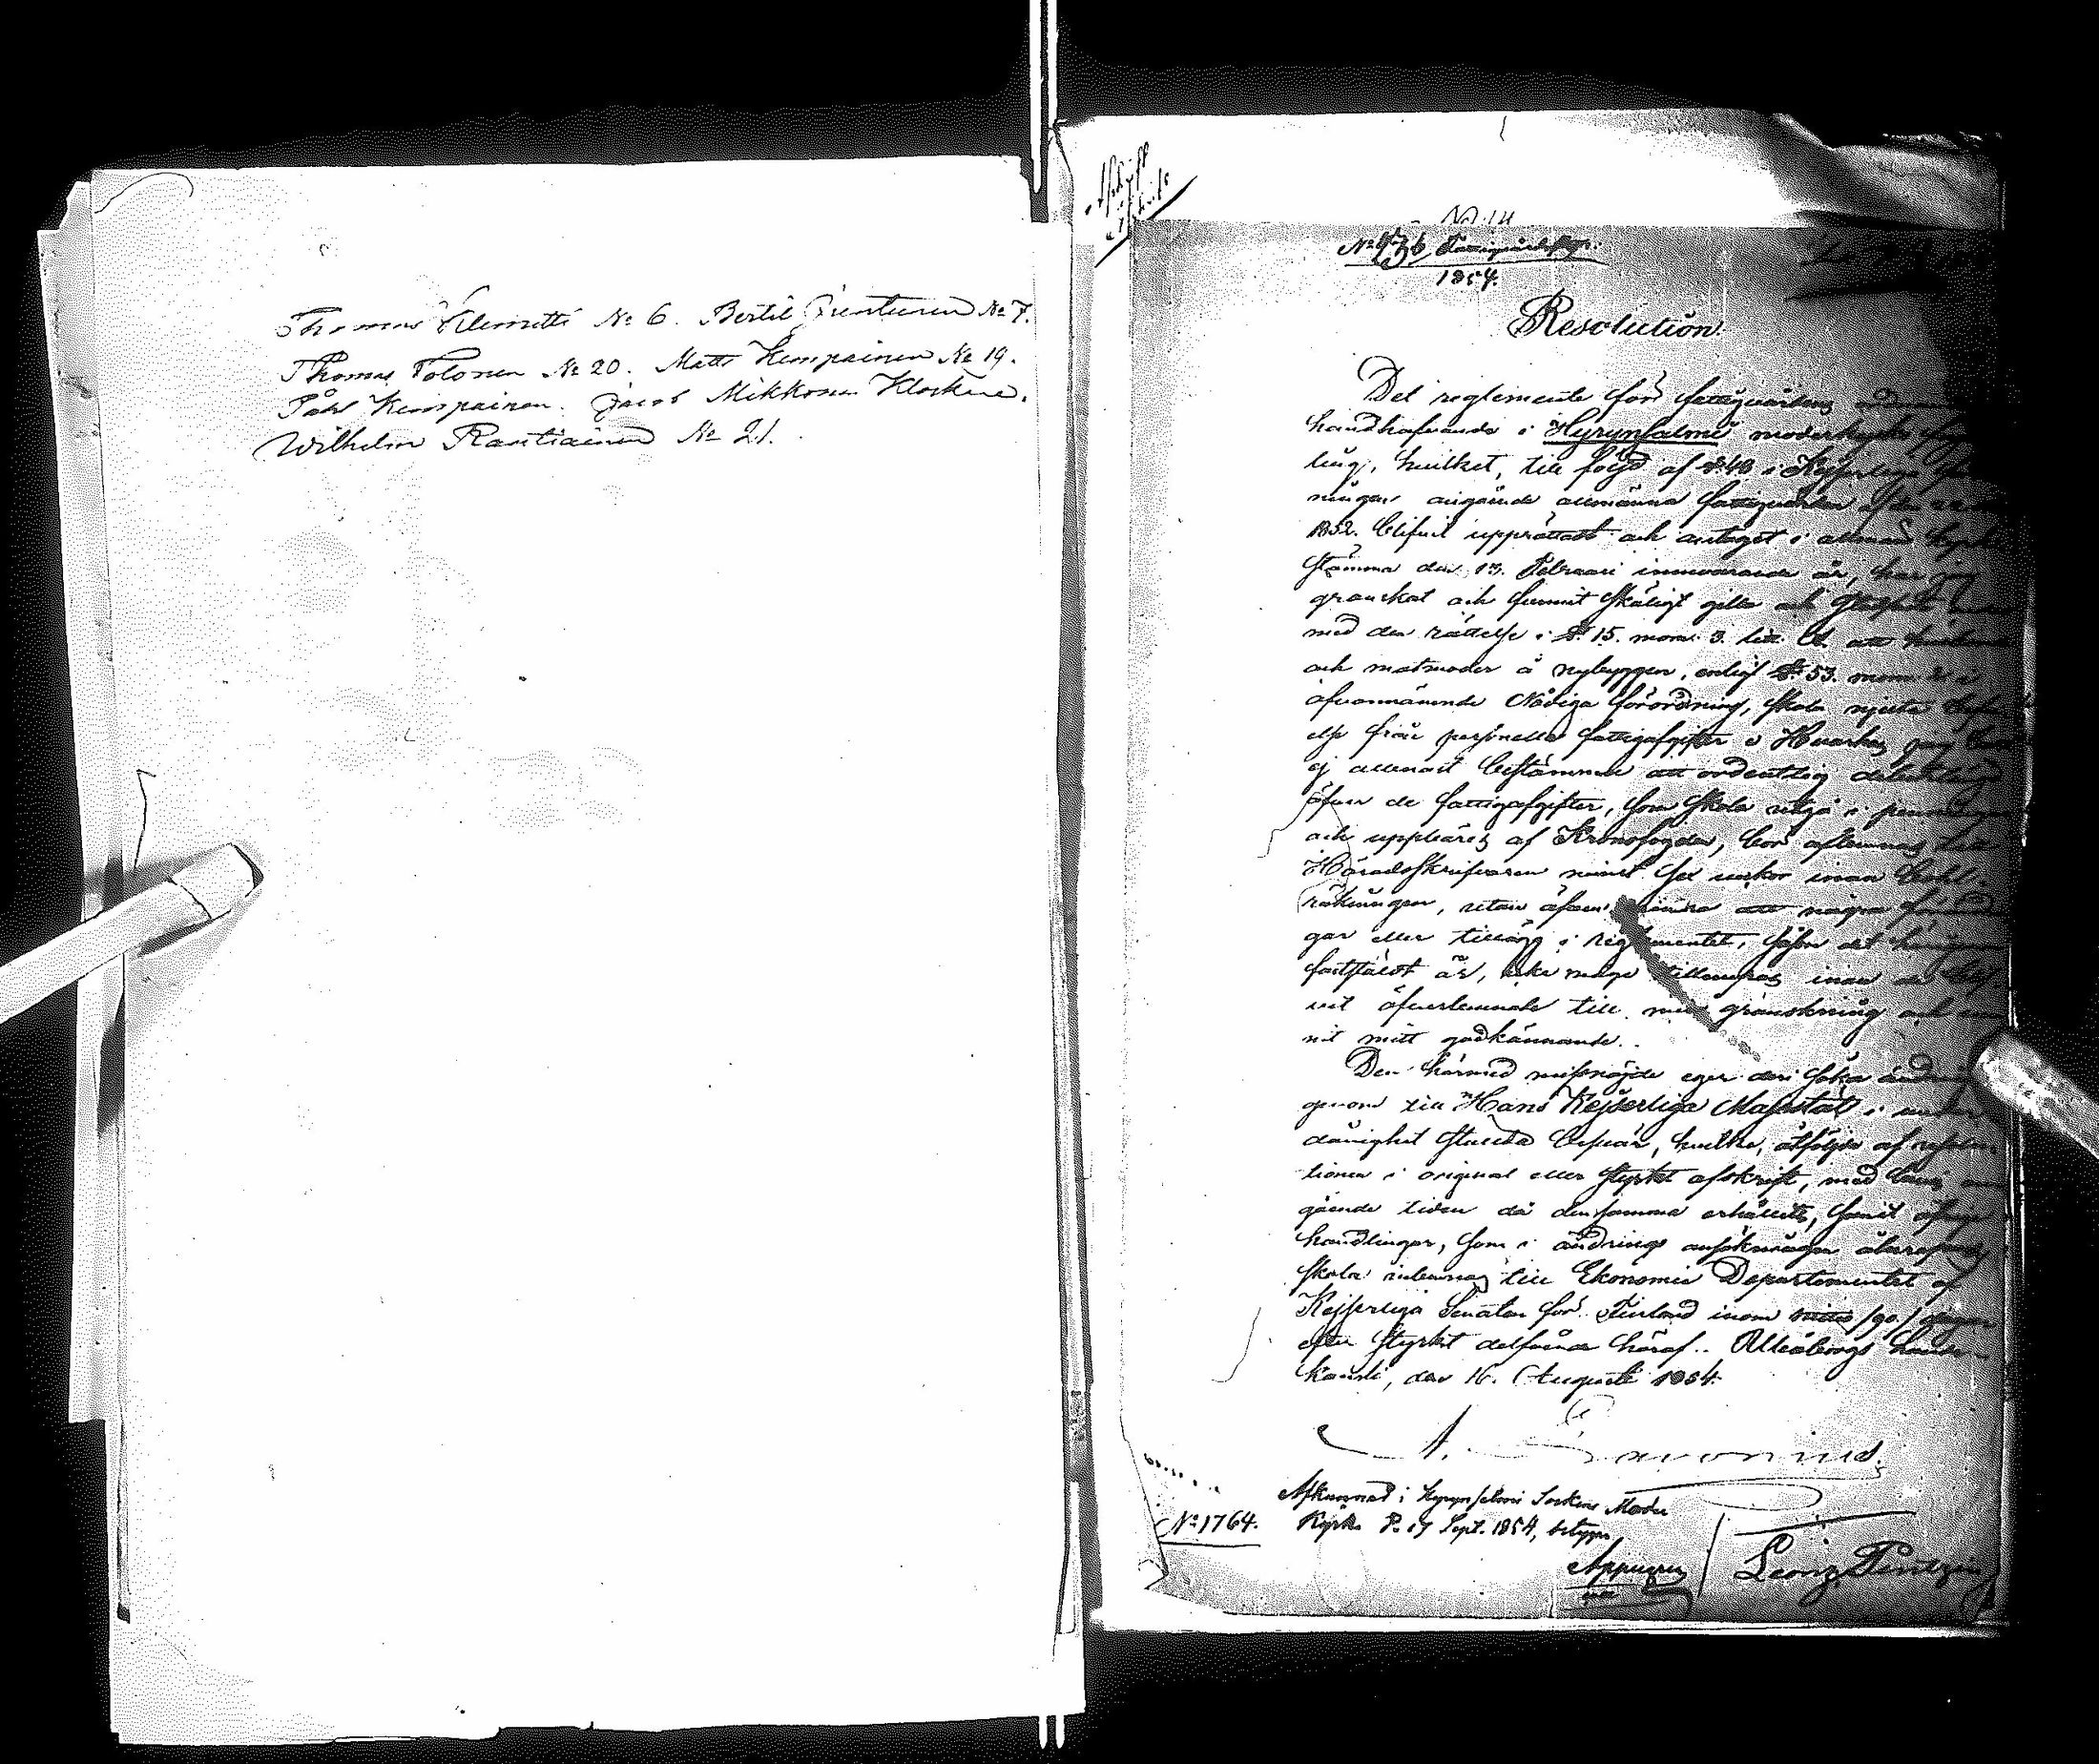 Thomas Klemetti № 6. Bertil Juntunen № 7.
Thomas Tolonen № 20. Matts Kempainen № 19.
Påhl Kempainen. Jacob Mikkonen Klockare.
Wilhelm Rautiainen № 21.
Afskrift
№ 14
№ 936
1854.
Resolution.
Det reglemente för fattigvårdens
handhafvande i Hyrynsalmi moderkyrko
ling, hvilket, till följd af §. 48 i Kejserliga
ningen angående allmänna fattigvården af den 22
1852. blifvit upprättadt och antaget i allmän kyrko
stämma den 13. Februari innevarande år, har jag
granskat och funnit skäligt gilla och
med den rättelse i §. 15. mom. 3. litt. att husbönder
och matmoder å nybyggen, enligt §. 53. mom. 2 i
ofvannämnde Nådiga förordning, skola njuta befri
else från personella fattigafgifter; Hvarhos jag
ej allenast bestämmer att ordentlig debetlängd
öfver de fattigafgifter, som skola utgå i penningar
och uppbäras af Kronofogden, bör aflemnas till
Häradsskrifvaren minst sex veckor innan
räkningen, utan äfven att några
gar eller tillägg i reglementet, såsom det härigenom
fastställdt är, icke måge tillämpas innan de blif-
vit öfverlemnade till min granskning och vun
nit mitt godkännande.
Den härmed missnöjde eger deri söka ändring
genom till Hans Kejserliga Majestät i under
dånighet ställda besvär, hvilka, åtföljda af resolu-
tionen i original eller styrkt afskrift, med bevis an
gående tiden då densamma erhållits, samt öfriga
handlingar, som i ändrings ansökningen åberopas,
skola inlemnas till Ekonomie Departementet af
Kejserliga Senaten för Finland inom nittio /90/ dagar
efter styrkt delfående häraf. Uleåborgs
kansli, den 16. Augusti 1854.
A. Lavonius.
№ 1764.
Afkunnad i Hyrynsalmi Sockens Moder
Kyrka d. 17 Sept. 1854, betygar
Appelgren
Georg